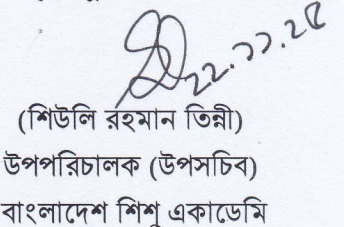 ২২.১১.২৫
(শিউলি রহমান তিন্নী)
উপপরিচালক (উপসচিব)
বাংলাদেশ শিশু একাডেমি